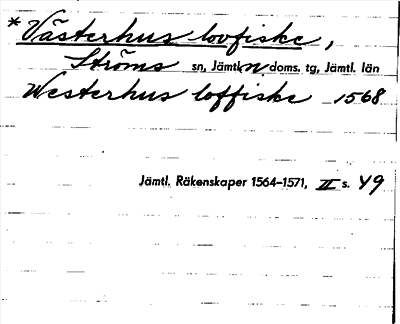 *Västerhus lovfiske,
Ströms sn, Jämtl. n doms. tg, Jämtl. län
Westerhus loffiske 1568
Jämtl. Räkenskaper 1564–1571, II s. 49